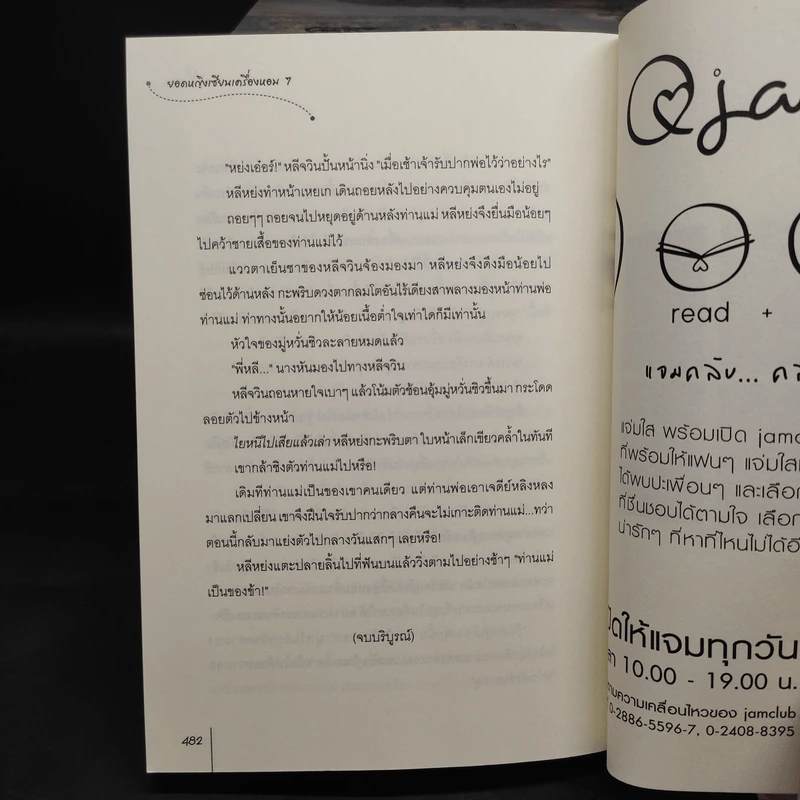 ยอดหญิงเซียนเครื่องหอม 7
"หย่งเอ๋อร์!" หลีจวินปั้นหน้านิ่ง "เมื่อเช้าเจ้ารับปากพ่อไว้ว่าอย่างไร"
หลีหย่งทำหน้าเหยเก เดินถอยหลังไปอย่างควบคุมตนเองไม่อยู่
ถอยๆๆ ถอยจนไปหยุดอยู่ด้านหลังท่านแม่ หลีหย่งจึงยื่นมือน้อยๆ
ไปคว้าชายเสื้อของท่านแม่ไว้
แววตาเย็นชาของหลีจวินจ้องมองมา หลีหย่งจึงดึงมือน้อยไป
ซ่อนไว้ด้านหลัง กะพริบดวงตากลมโตอันไร้เดียงสาพลางมองหน้าท่านพ่อ
ท่านแม่ ท่าทางนั้นอยากให้น้อยเนื้อต่ำใจเท่าใดก็มีเท่านั้น
หัวใจของมู่หวั่นชิวละลายหมดแล้ว
"พี่หลี..." นางหันมองไปทางหลีจวิน
หลีจวินถอนหายใจเบาๆ แล้วโน้มตัวช้อนอุ้มมู่หวั่นชิวขึ้นมา กระโดด
ลอยตัวไปข้างหน้า
ไยหนีไปเสียแล้วเล่า หลีหย่งกะพริบตา ใบหน้าเล็กเขียวคล้ำในทันที
เขากล้าชิงตัวท่านแม่ไปหรือ!
เดิมทีท่านแม่เป็นของเขาคนเดียว แต่ท่านพ่อเอาเจดีย์หลิงหลง
มาแลกเปลี่ยน เขาจึงฝืนใจรับปากว่ากลางคืนจะไม่เกาะติดท่านแม่...ทว่า
ตอนนี้กลับมาแย่งตัวไปกลางวันแสกๆ เลยหรือ!
หลีหย่งแตะปลายลิ้นไปที่ฟันบนแล้ววิ่งตามไปอย่างช้าๆ "ท่านแม่
เป็นของข้า!"
(จบบริบูรณ์)
482
@ja
read +
แจมคลับ...
แจ่มใส พร้อมเปิด jamc
ที่พร้อมให้แฟนๆ แจ่มใส
ได้พบปะเพื่อนๆ และเลือก
ที่ชื่นชอบได้ตามใจ เลือก
น่ารักๆ ที่หาที่ไหนไม่ได้อี
ให้แจมทุกวัน
10.00 - 19.00 น.
ความเคลื่อนไหวของ jamclub
0-2886-5596-7, 0-2408-8395